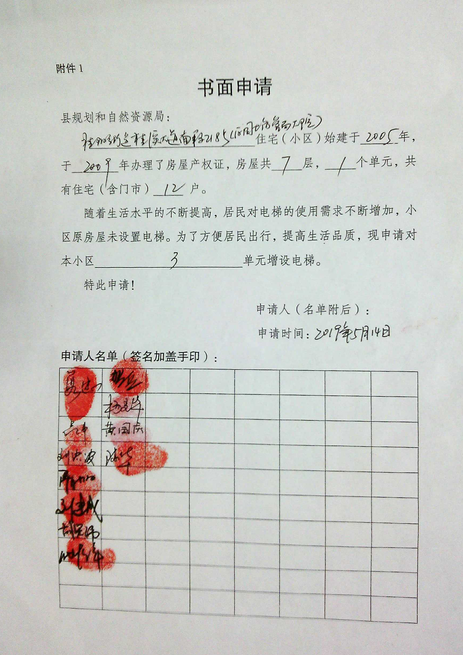 附件1
书面申请
县规划和自然资源局：
住宅（小区）始建于2005年，
于2009年办理了房屋产权证，房屋共7层，1个单元，共
有住宅（含门市）12户。
随着生活水平的不断提高，居民对电梯的使用需求不断增加，小
区原房屋未设置电梯。为了方便居民出行，提高生活品质，现申请对
本小区3单元增设电梯。
特此申请！
申请人（名单附后）：
申请时间：2019年5月14日
申请人名单（签名加盖手印）：
黄国庆